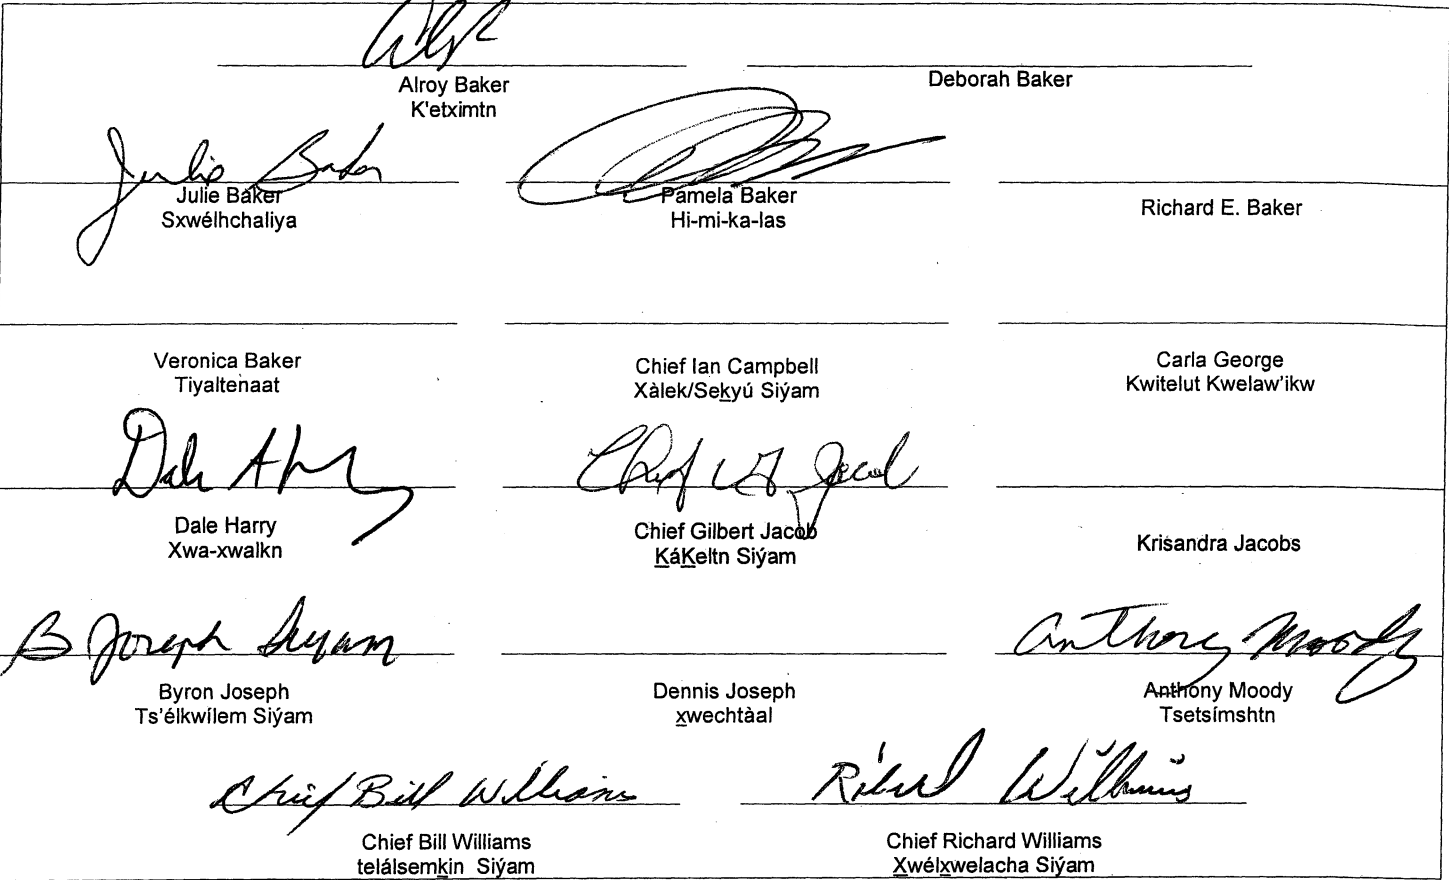 Alroy Baker
K'etximtn
Deborah Baker
Julie Baker
Julie Baker
Sxwélhchaliya
Pamela Baker
Hi-mi-ka-las
Richard E. Baker
Veronica Baker
Tiyaltenaat
Chief Ian Campbell
Xàlek/Sekyú Siý̓am
Carla George
Kwitelut Kwelaw'ikw
Dale Harry
Dale Harry
Xwa-xwalkn
Chief Jacob
Chief Gilbert Jacob
KáKeltn Siý̓am
Krisandra Jacobs
B Joseph Siyam
Byron Joseph
Ts'élkwílem Siý̓am
Dennis Joseph
xwechtàal
Anthony Moody
Anthony Moody
Tsetsímshtn
Chief Bill Williams
Chief Bill Williams
telálsemkin Siý̓am
Richard Williams
Chief Richard Williams
Xwélxwelacha Siý̓am